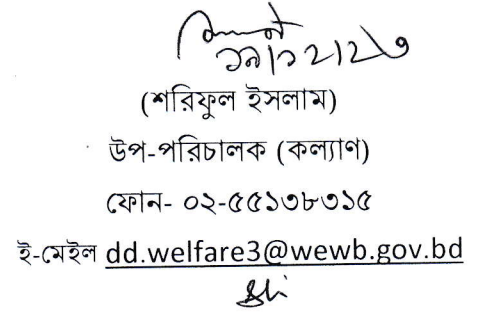 ১৯/১২/২৩
(শরিফুল ইসলাম)
উপ-পরিচালক (কল্যাণ)
ফোন- ০২-৫৫১৩৮৩১৫
ই-মেইল dd.welfare3@wewb.gov.bd